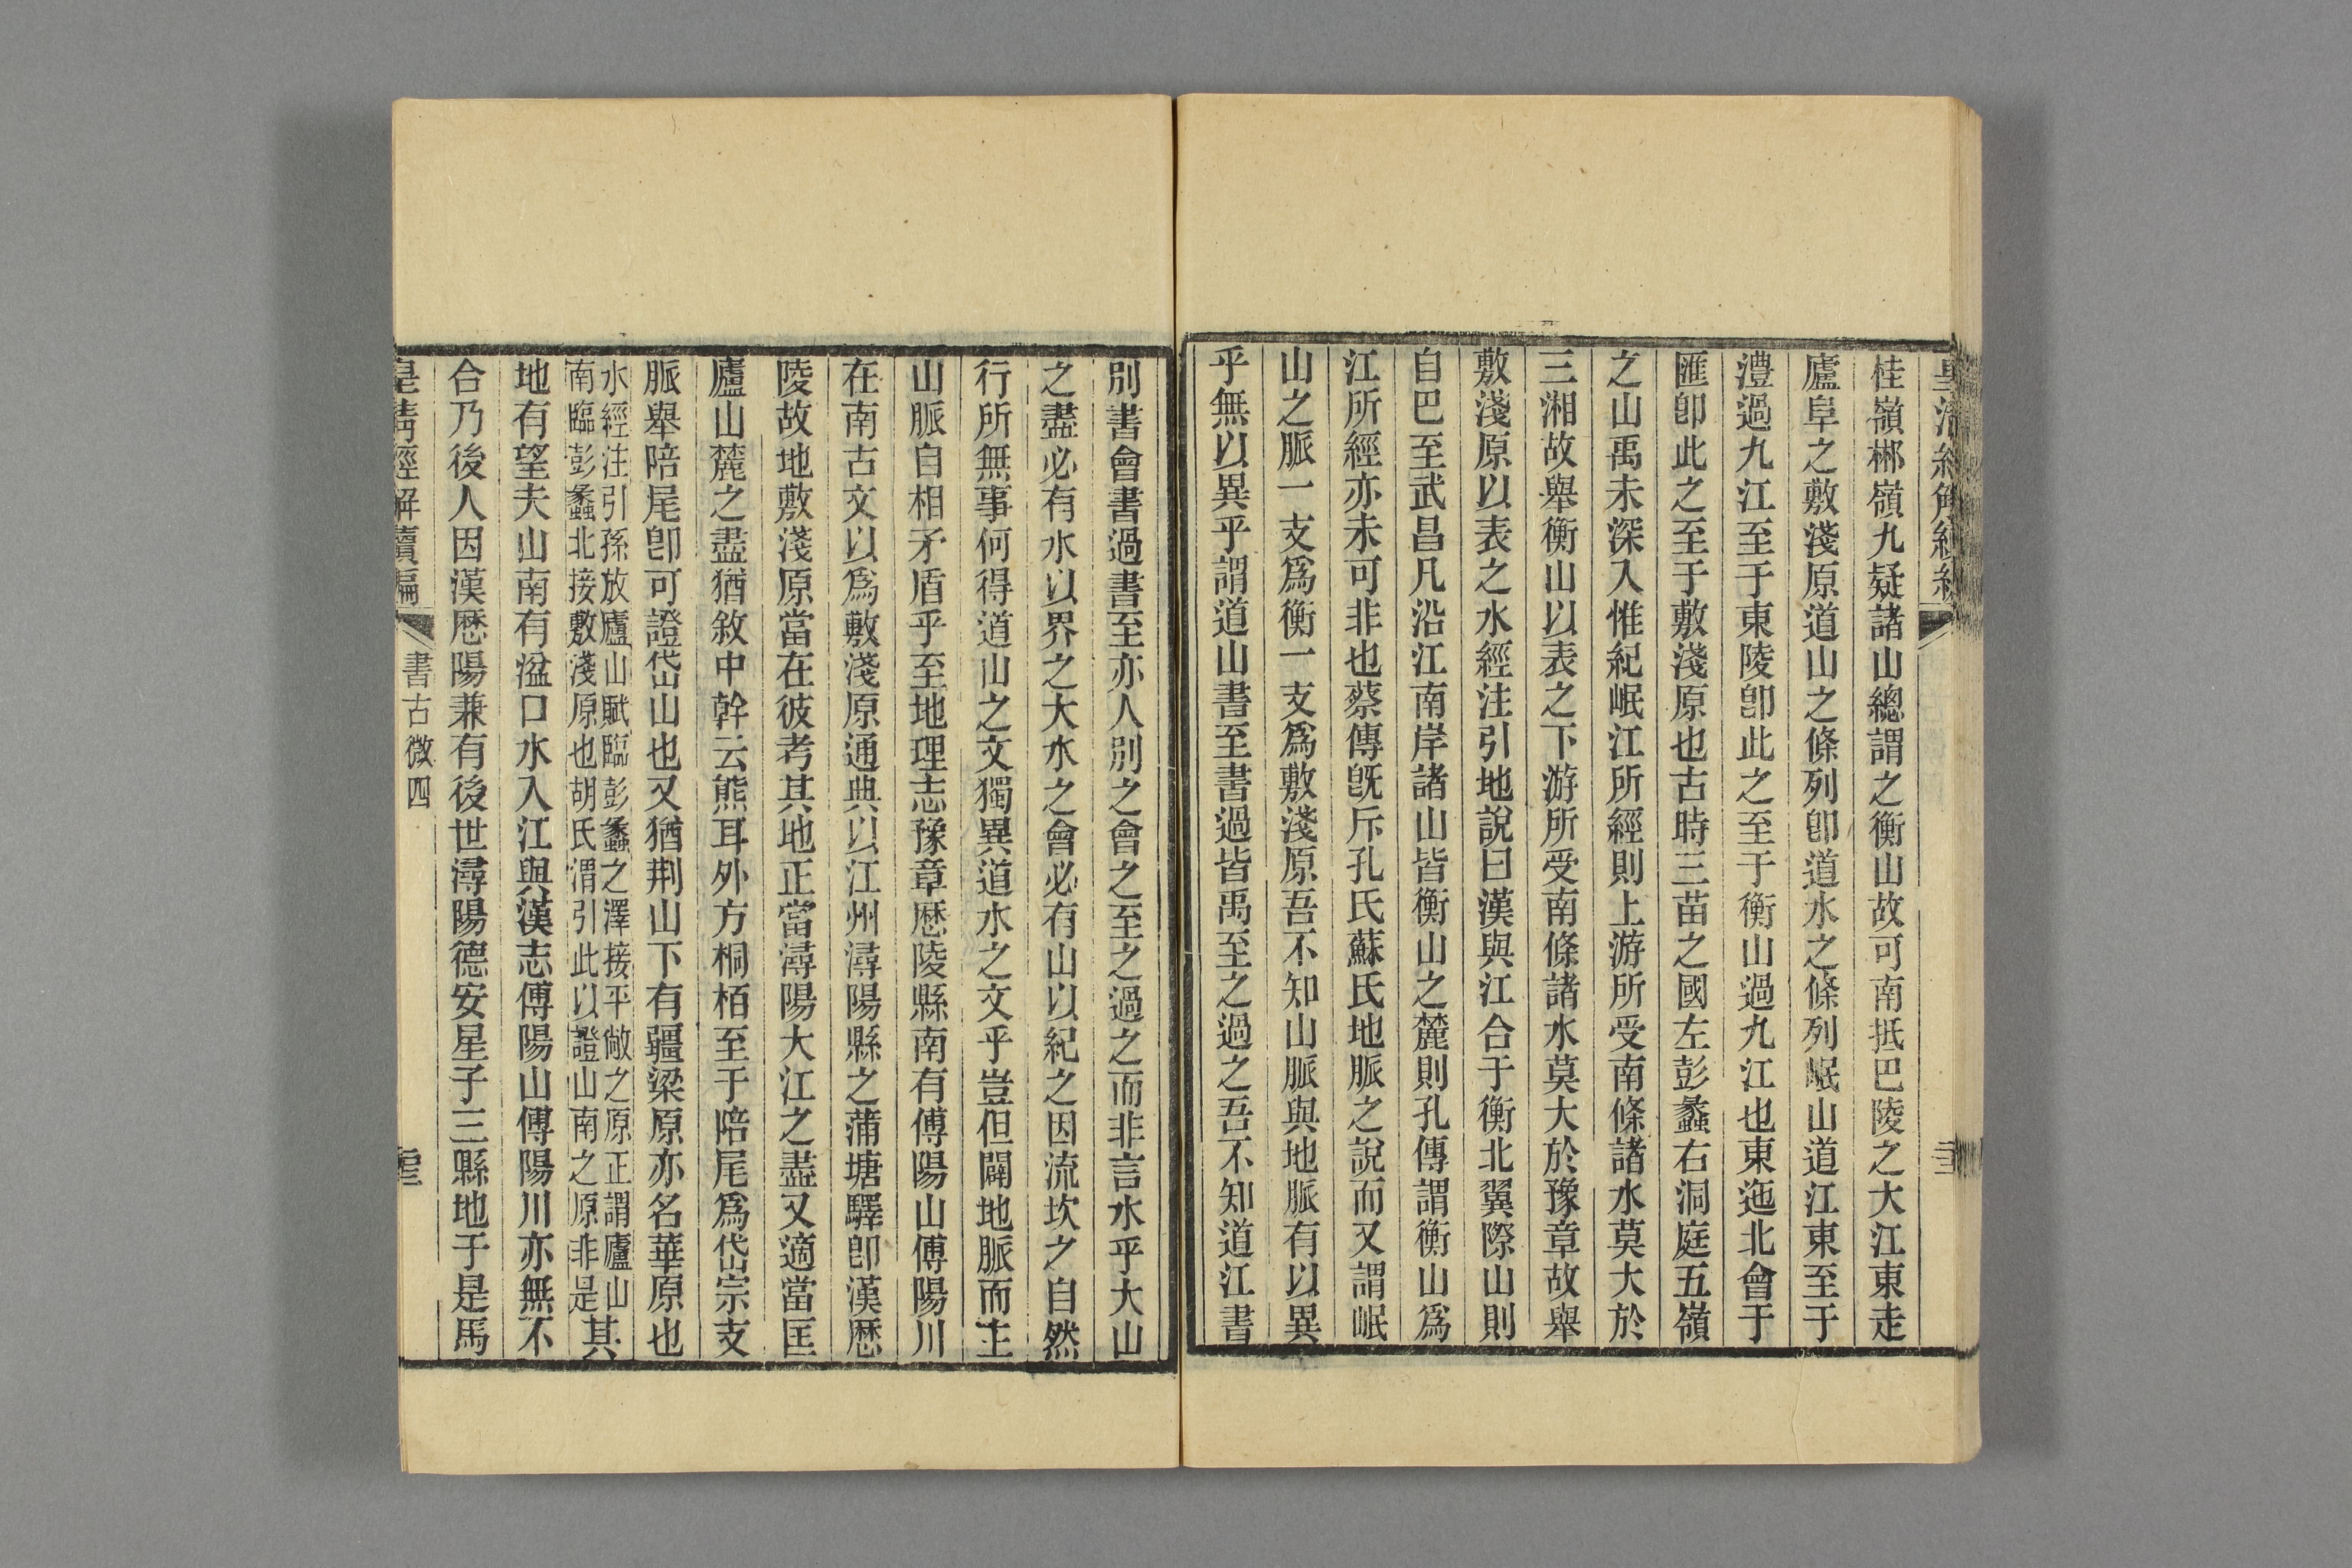 桂嶺郴嶺九疑諸山總謂之衡山故可南抵巴陵之大江東走
廬阜之敷淺原道山之條列卽道水之條列岷山道江東至于
澧過九江至于東陵卽此之至于衡山過九江也東迤北會于
匯卽此之至于敷淺原也古時三苗之國左彭蠡右洞庭五嶺
之山禹未深入惟紀岷江所經則上游所受南條諸水莫大於
三湘故舉衡山以表之下游所受南條諸水莫大於豫章故舉
敷淺原以表之水經注引地說曰漢與江合于衡北翼際山則
自巴至武昌凡沿江南岸諸山皆衡山之麓則孔傳謂衡山爲
江所經亦未可非也蔡傳旣斥孔氏蘇氏地脈之說而又謂岷
山之脈一支爲衡一支爲敷淺原吾不知山脈與地脈有以異
乎無以異乎謂道山書至書過皆禹至之過之吾不知道江書
別書會書過書至亦人別之會之至之過之而非言水乎大山
之盡必有水以界之大水之會必有山以紀之因流坎之自然
行所無事何得道山之文獨異道水之文乎豈但闢地脈而主
山脈自相矛盾乎至地理志豫章歷陵縣南有傅陽山傅陽川
在南古文以爲敷淺原通典以江州潯陽縣之蒲塘驛卽漢歷
陵故地敷淺原當在彼考其地正當潯陽大江之盡又適當匡
廬山麓之盡猶敘中幹云熊耳外方桐栢至于陪尾爲岱宗支
脈舉陪尾卽可證岱山也又猶荆山下有疆梁原亦名華原也
水經注引孫放廬山賦臨彭蠡之澤接平敞之原正謂廬山
南臨彭蠡北接敷淺原也胡氏渭引此以證山南之原非是其
地有望夫山南有湓口水入江與漢志傅陽山傅陽川亦無不
合乃後人因漢歷陽兼有後世潯陽德安星子三縣地于是馬
皇清經解續編
書古微四